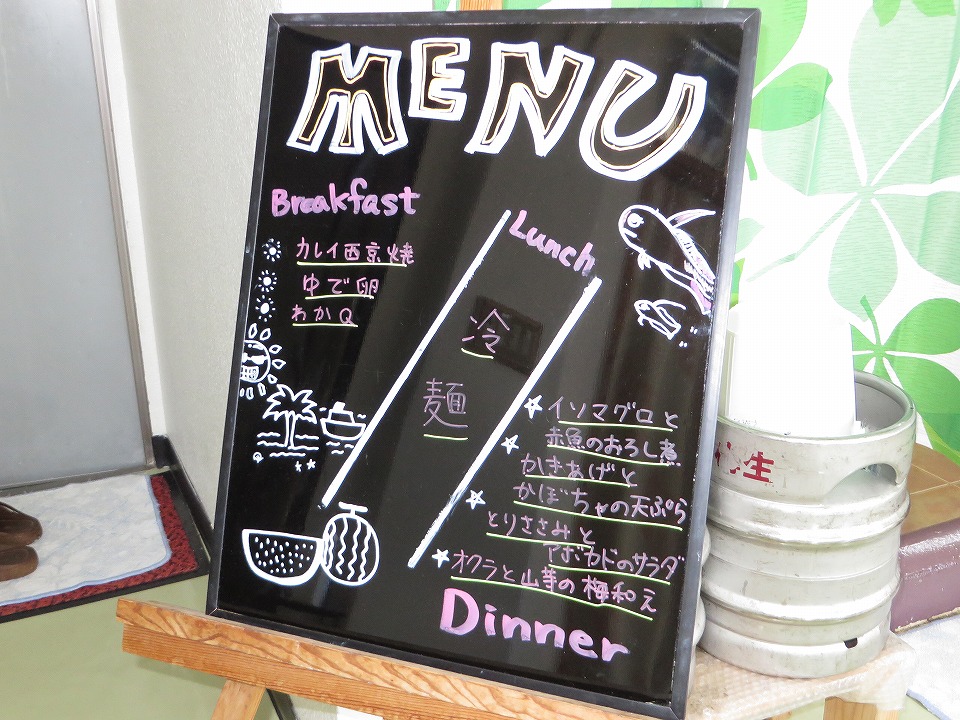 MENU
Breakfast
カレイ西京焼
ゆで卵
わかQ
Lunch
冷
麺
イソマグロと
赤魚のおろし煮
かきあげと
かぼちゃの天ぷら
とりささみと
アボカドのサラダ
オクラと山芋の梅和え
Dinner
生